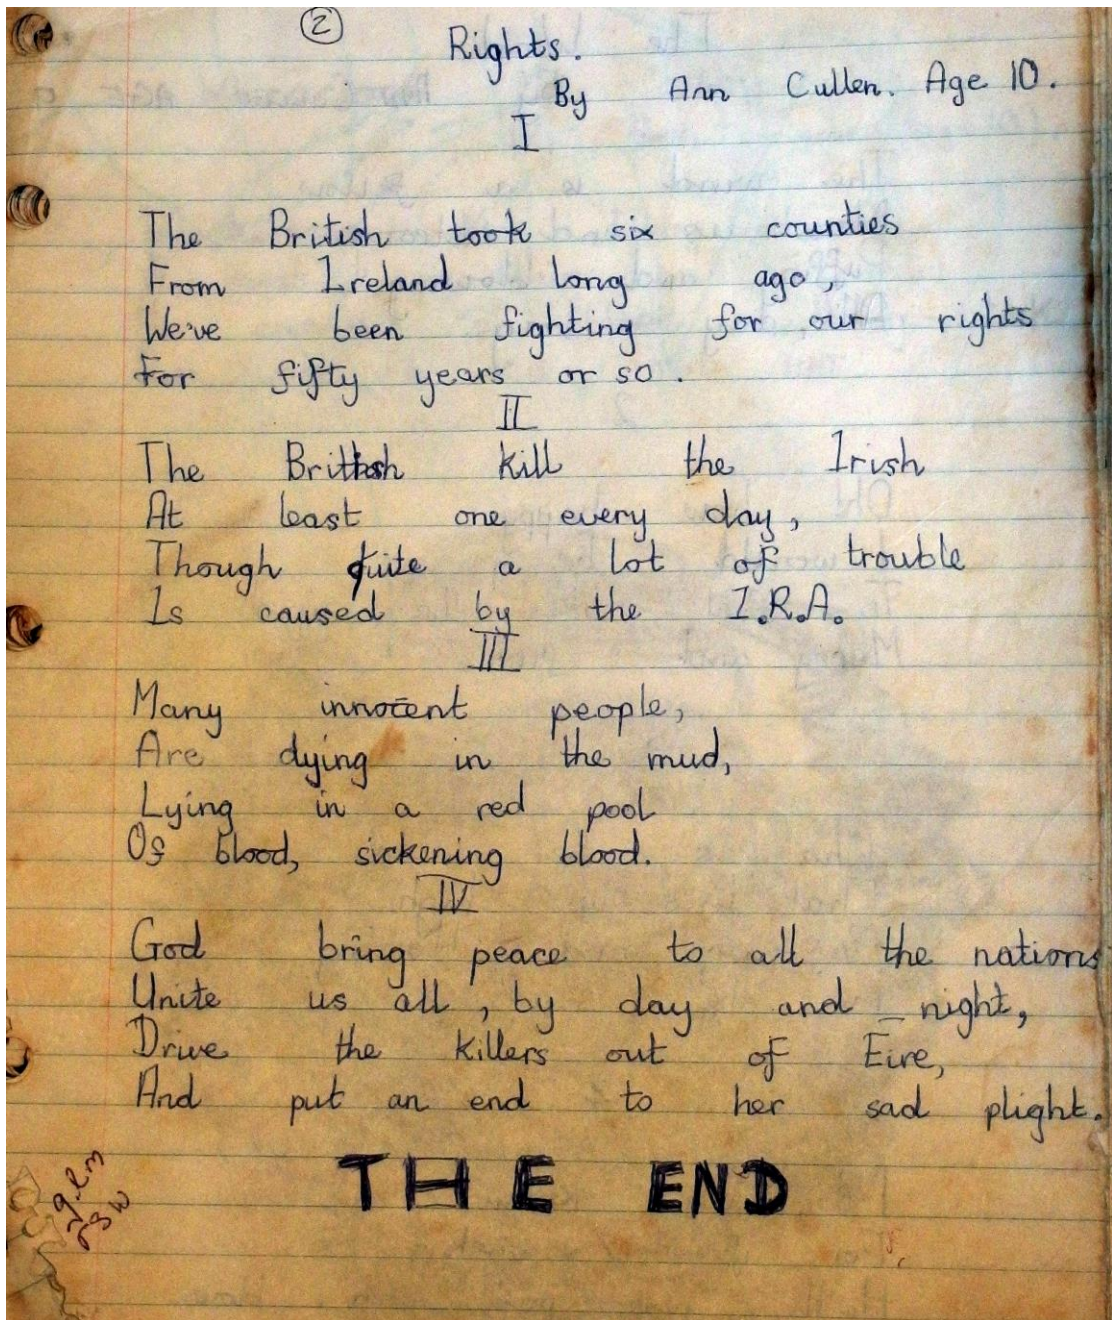 2
Rights.
By Ann Cullen. Age 10.
I
The British took six counties
From Ireland long ago,
We've been fighting for our rights
For fifty years or so.
II
The British kill the Irish
At least one every day,
Though quite a lot of trouble
Is caused by the I.R.A.
III
Many innocent people,
Are dying in the mud,
Lying in a red pool
Of blood, sickening blood.
IV
God bring peace to all the nations
Unite us all, by day and night,
Drive the killers out of Éire,
And put an end to her sad plight.
THE END